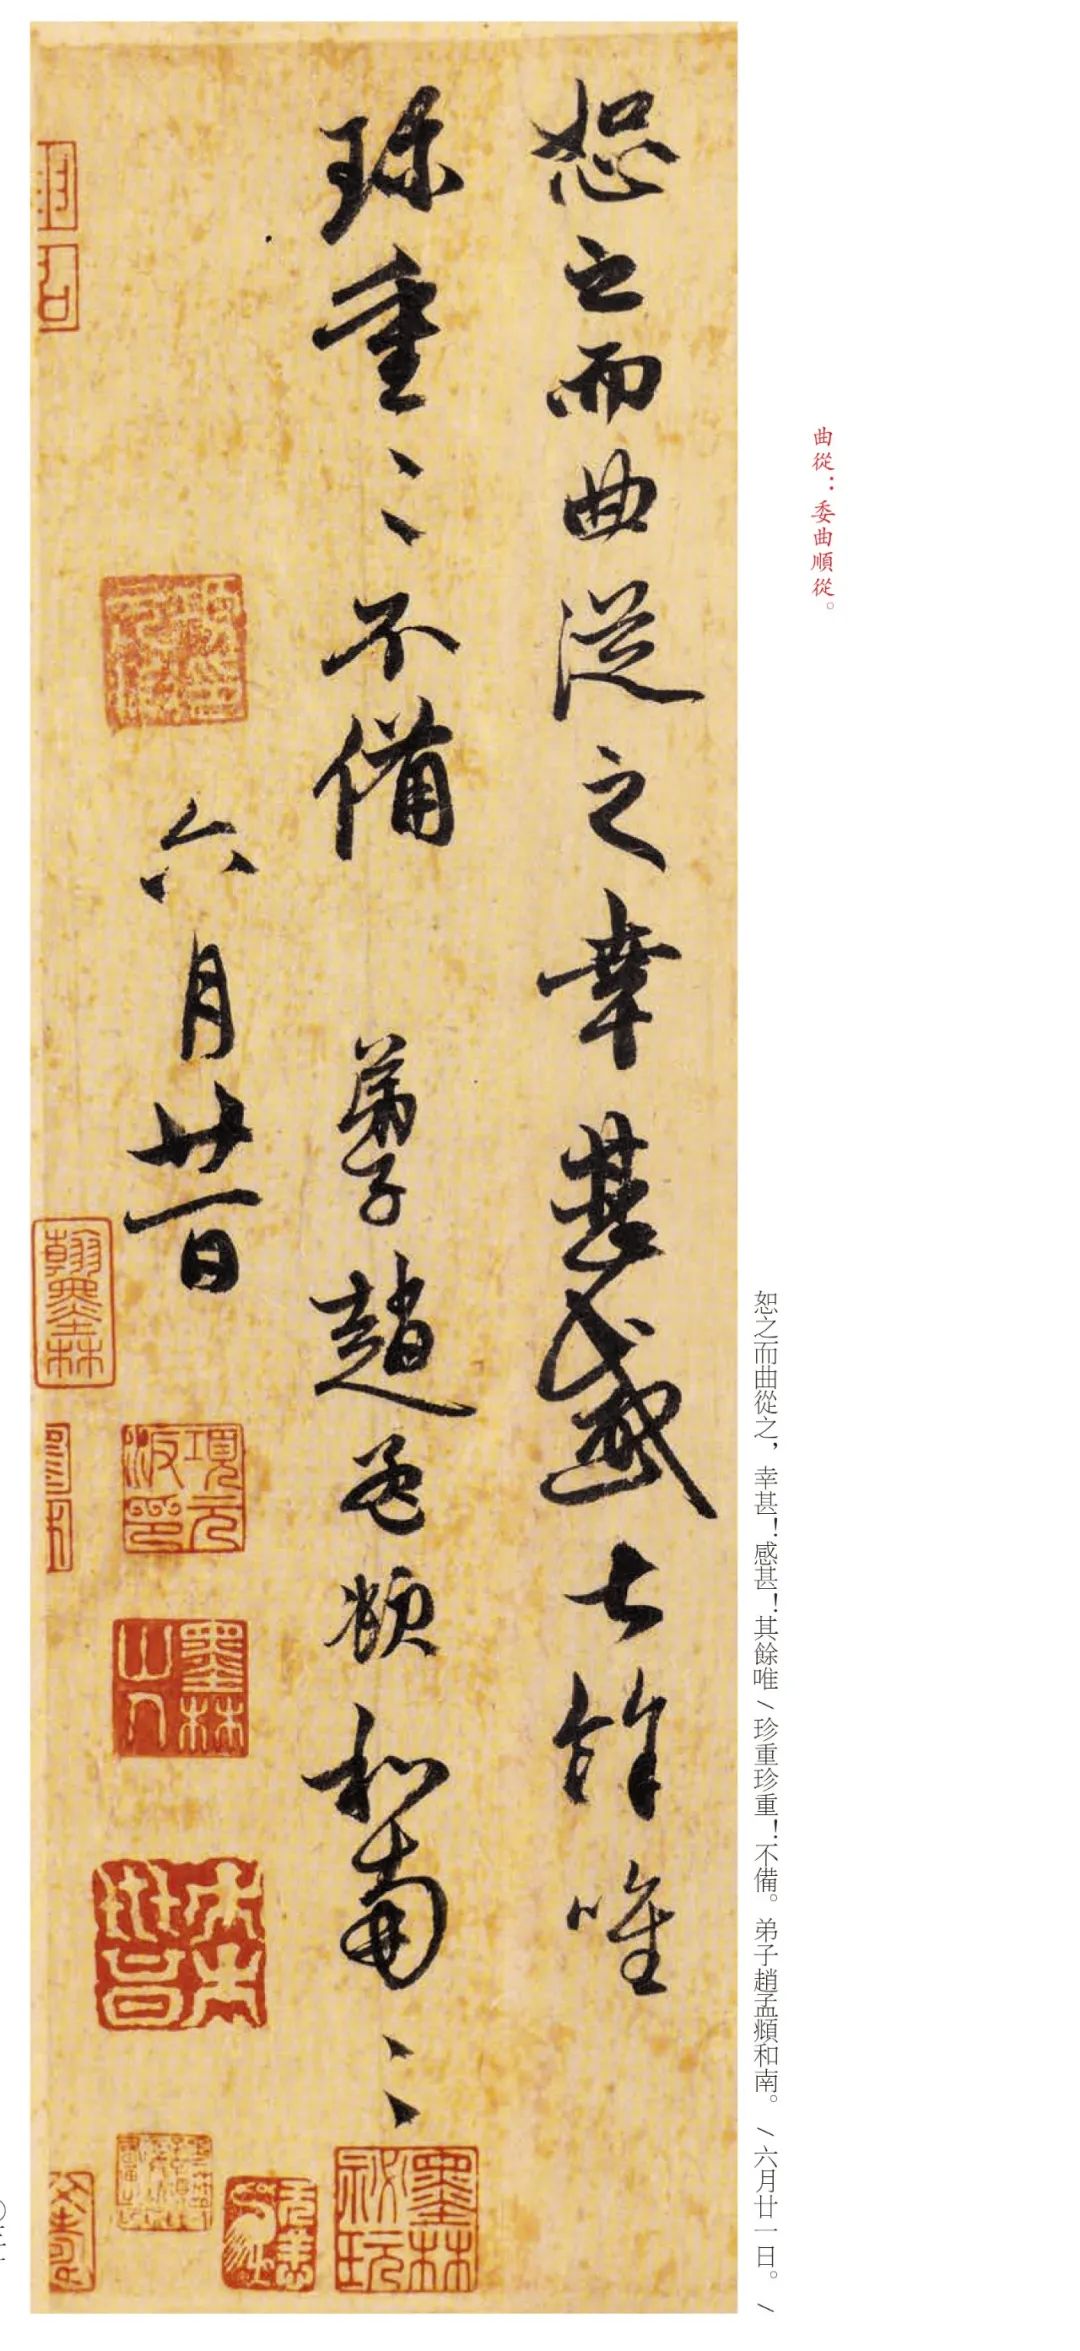 曲從：委曲順從。
恕之而曲從之，幸甚！感甚！其餘唯／珍重珍重！不備。弟子趙孟頫和南。／六月廿一日。／
恕之而曲從之幸甚感甚其餘唯
珍重〻不備 弟子趙孟頫和南〻
六月廿一日
翰墨林
項元汴印
墨林山人
墨林秘玩